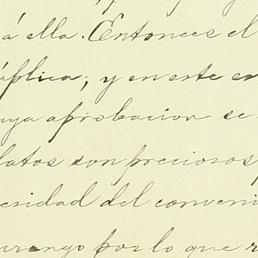 á ella. Entonces el
ública; y en este
uya aprobacion se
datos son preciosos
esidad del conveni
urango por lo que r